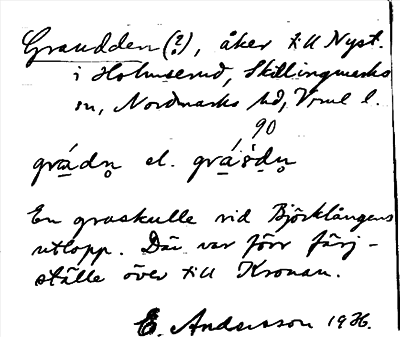 Graudden (?), åker till Nyst.
i Holmserud, Skillingmarks
sn, Nordmarks hd, Vrml l.
90
grádn̥ el. grás̆dn̥
En graskulle vid Björklångens
utlopp. Där var förr färj-
ställe över till Kronan.
E. Andersson 1936.